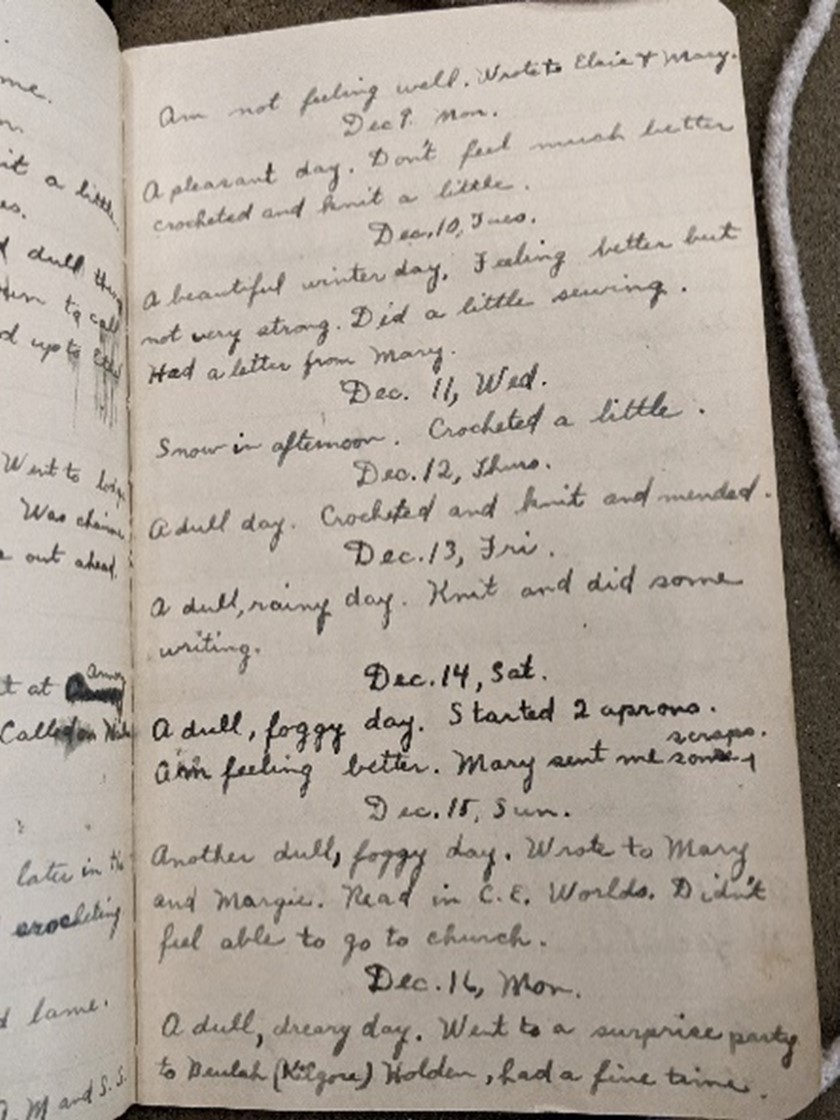 me.
it a little.
es.
d dull
to call
d up to
Went to
Was
e out ahead.
t at
Called on
later in
crocheting
d lame.
M and S.S.
Am not feeling well. Wrote to Elsie & Mary.
Dec 9. Mon.
A pleasant day. Don't feel much better
crocheted and knit a little.
Dec. 10, Tues.
A beautiful winter day. Feeling better but
not very strong. Did a little sewing.
Had a letter from Mary.
Dec. 11, Wed.
Snow in afternoon. Crocheted a little.
Dec. 12, Thurs.
A dull day. Crocheted and knit and mended.
Dec. 13, Fri.
A dull, rainy day. Knit and did some
writing.
Dec. 14, Sat.
A dull, foggy day. Started 2 aprons.
Am feeling better. Mary sent me some scraps.
Dec. 15, Sun.
Another dull, foggy day. Wrote to Mary
and Margie. Read in C.E. Worlds. Didn't
feel able to go to church.
Dec. 16, Mon.
A dull, dreary day. Went to a surprise party
to Beulah (Kilgore) Holden, had a fine time.